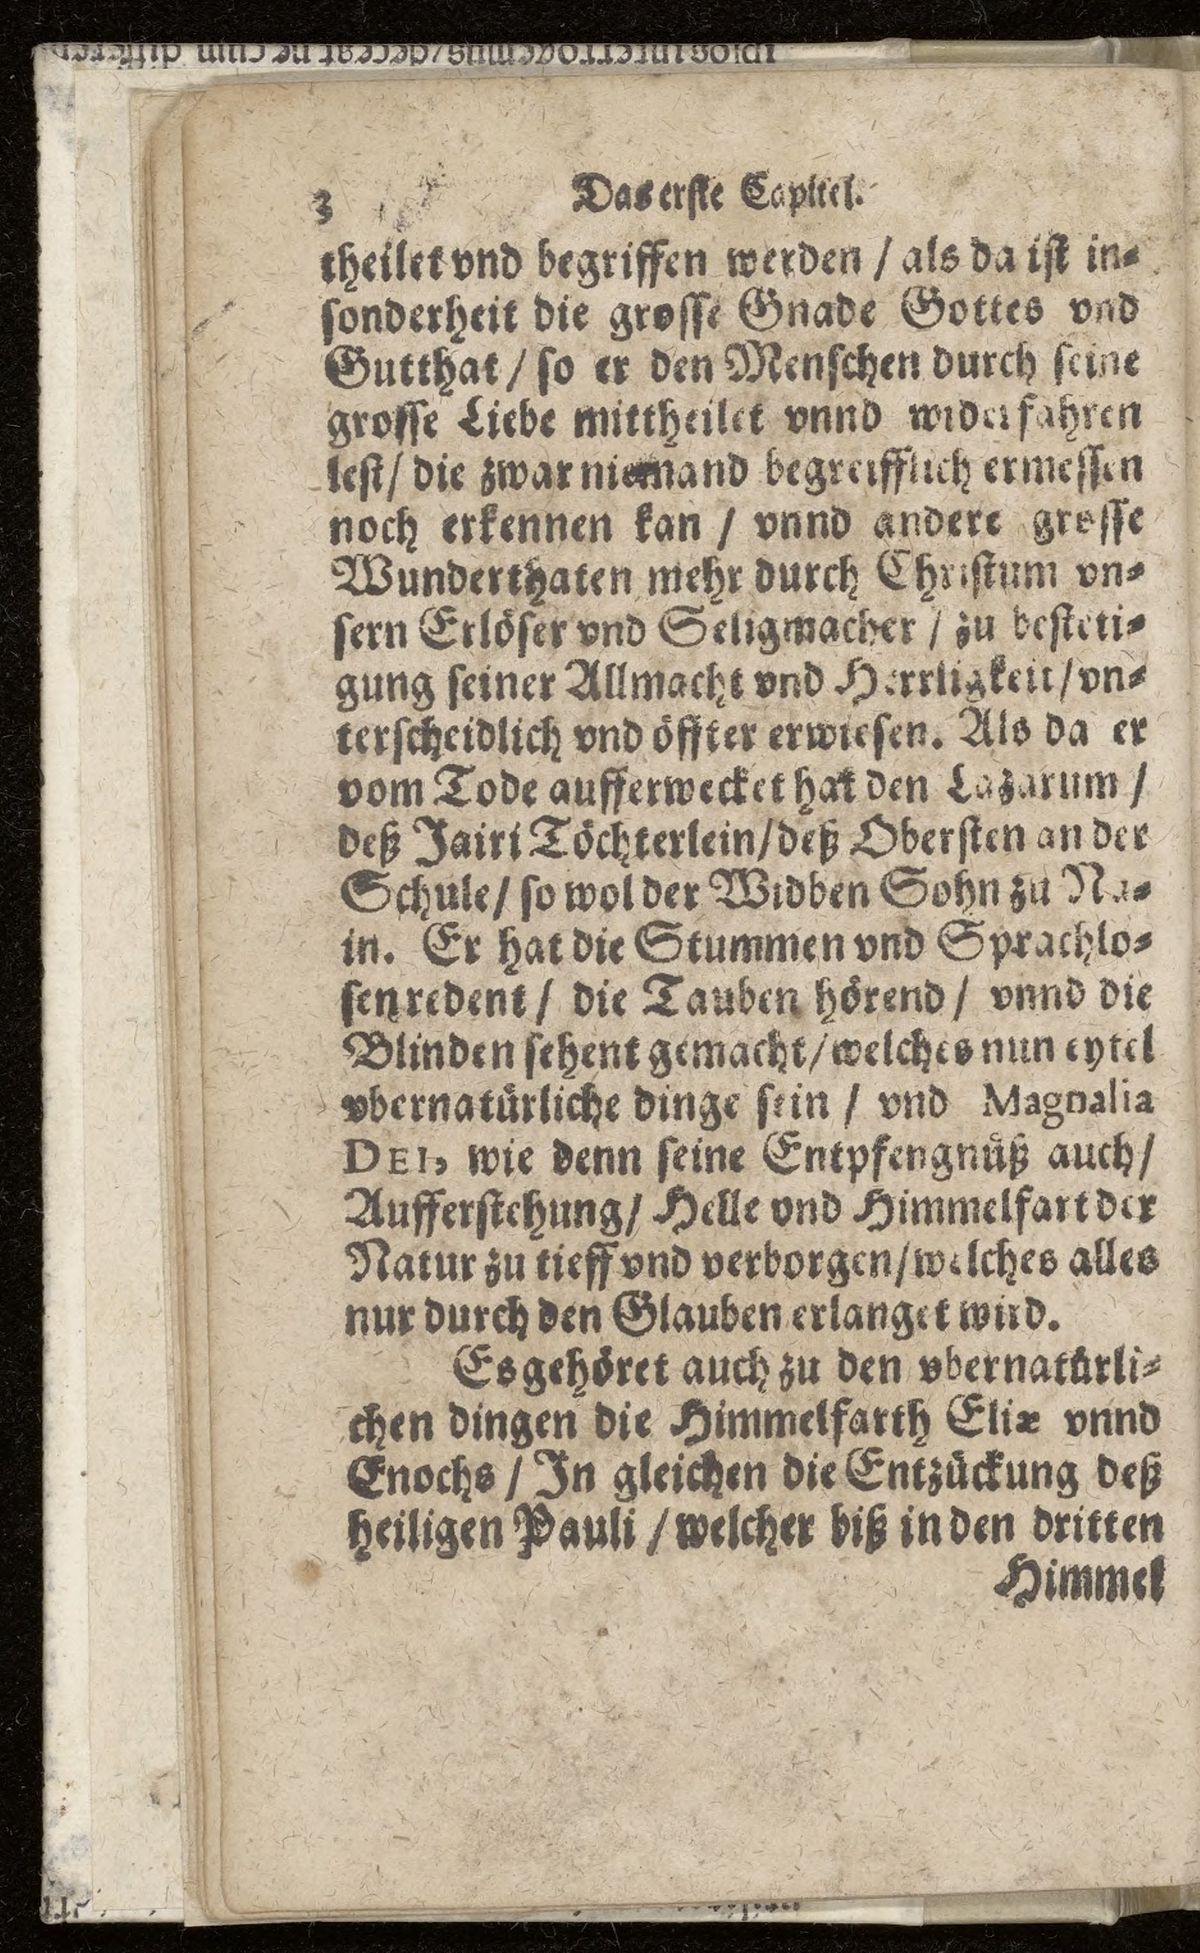 3 Das erste Capitel.
theilet vnd begriffen werden / als da ist in-
sonderheit die grosse Gnade Gottes vnd
Gutthat / so er den Menschen durch seine
grosse Liebe mittheilet vnnd widerfahren
lest / die zwar niemand begreifflich ermessen
noch erkennen kan / vnnd andere grosse
Wunderthaten mehr durch Christum vn-
sern Erlöser vnd Seligmacher / zu besteti-
gung seiner Allmacht vnd Herrligkeit / vn-
terscheidlich vnd öffter erwiesen. Als da er
vom Tode aufferwecket hat den Lazarum /
deß Jairi Töchterlein / deß Obersten an der
Schule / so wol der Widben Sohn zu Na-
in. Er hat die Stummen vnd Sprachlo-
sen redent / die Tauben hörend / vnnd die
Blinden sehent gemacht / welches nun eytel
vbernatürliche dinge sein / vnd Magnalia
DEI, wie denn seine Entpfengnüß auch /
Aufferstehung / Helle vnd Himmelfart der
Natur zu tieff vnd verborgen / welches alles
nur durch den Glauben erlanget wird.
Es gehöret auch zu den vbernatürli-
chen dingen die Himmelfarth Eliæ vnnd
Enochs / In gleichen die Entzückung deß
heiligen Pauli / welcher biß in den dritten
Himmel